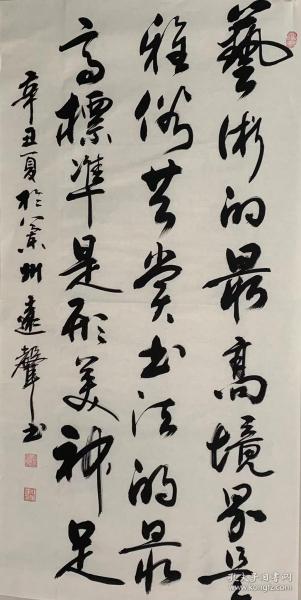 藝術的最高境界是
雅俗共赏书法的最
高標準是形美神足
辛丑夏於兰州遠聲书
孔夫子旧书网
www.kongfz.com